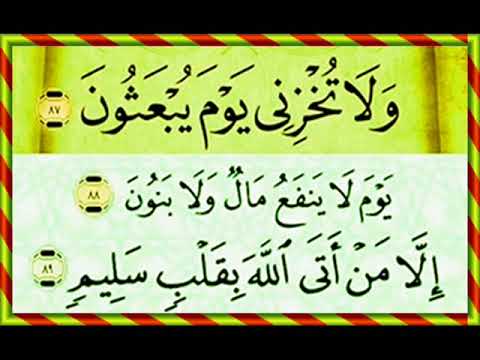 وَلَا تُخْزِنِى يَوْمَ يُبْعَثُونَ ٨٧
يَوْمَ لَا يَنفَعُ مَالٌ وَلَا بَنُونَ ٨٨
إِلَّا مَنْ أَتَى ٱللَّهَ بِقَلْبٍ سَلِيمٍ ٨٩